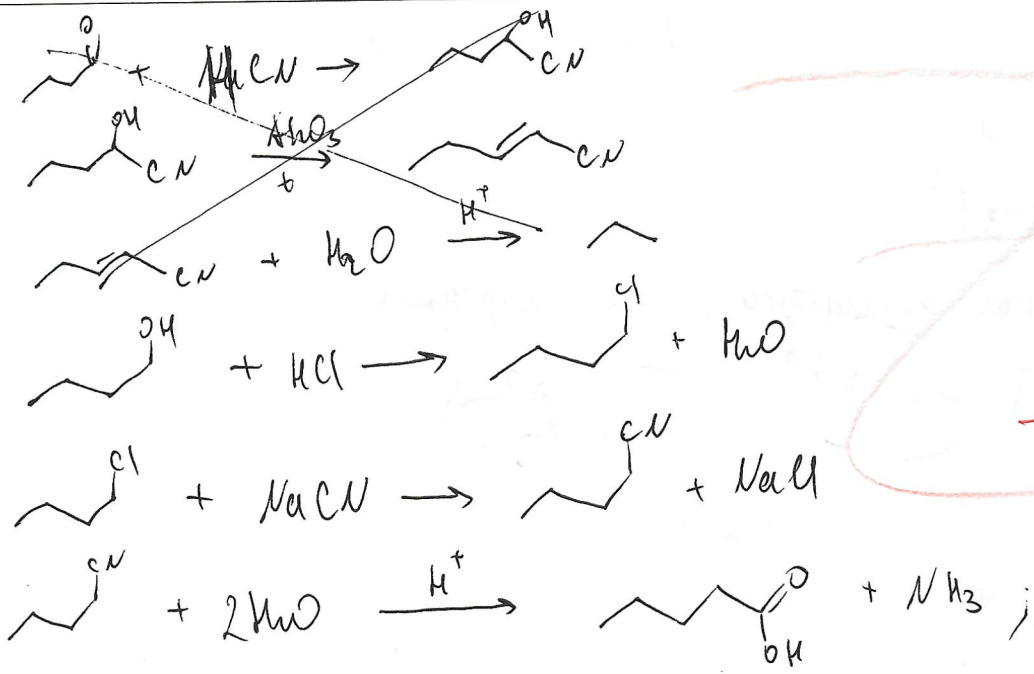 O OH
+ HCN → CN
OH CN Al2O3 t → CN
CN + H2O H+ →
OH + HCl → Cl + H2O
Cl + NaCN → CN + NaCl
CN + 2H2O H+ → O OH + NH3 ;